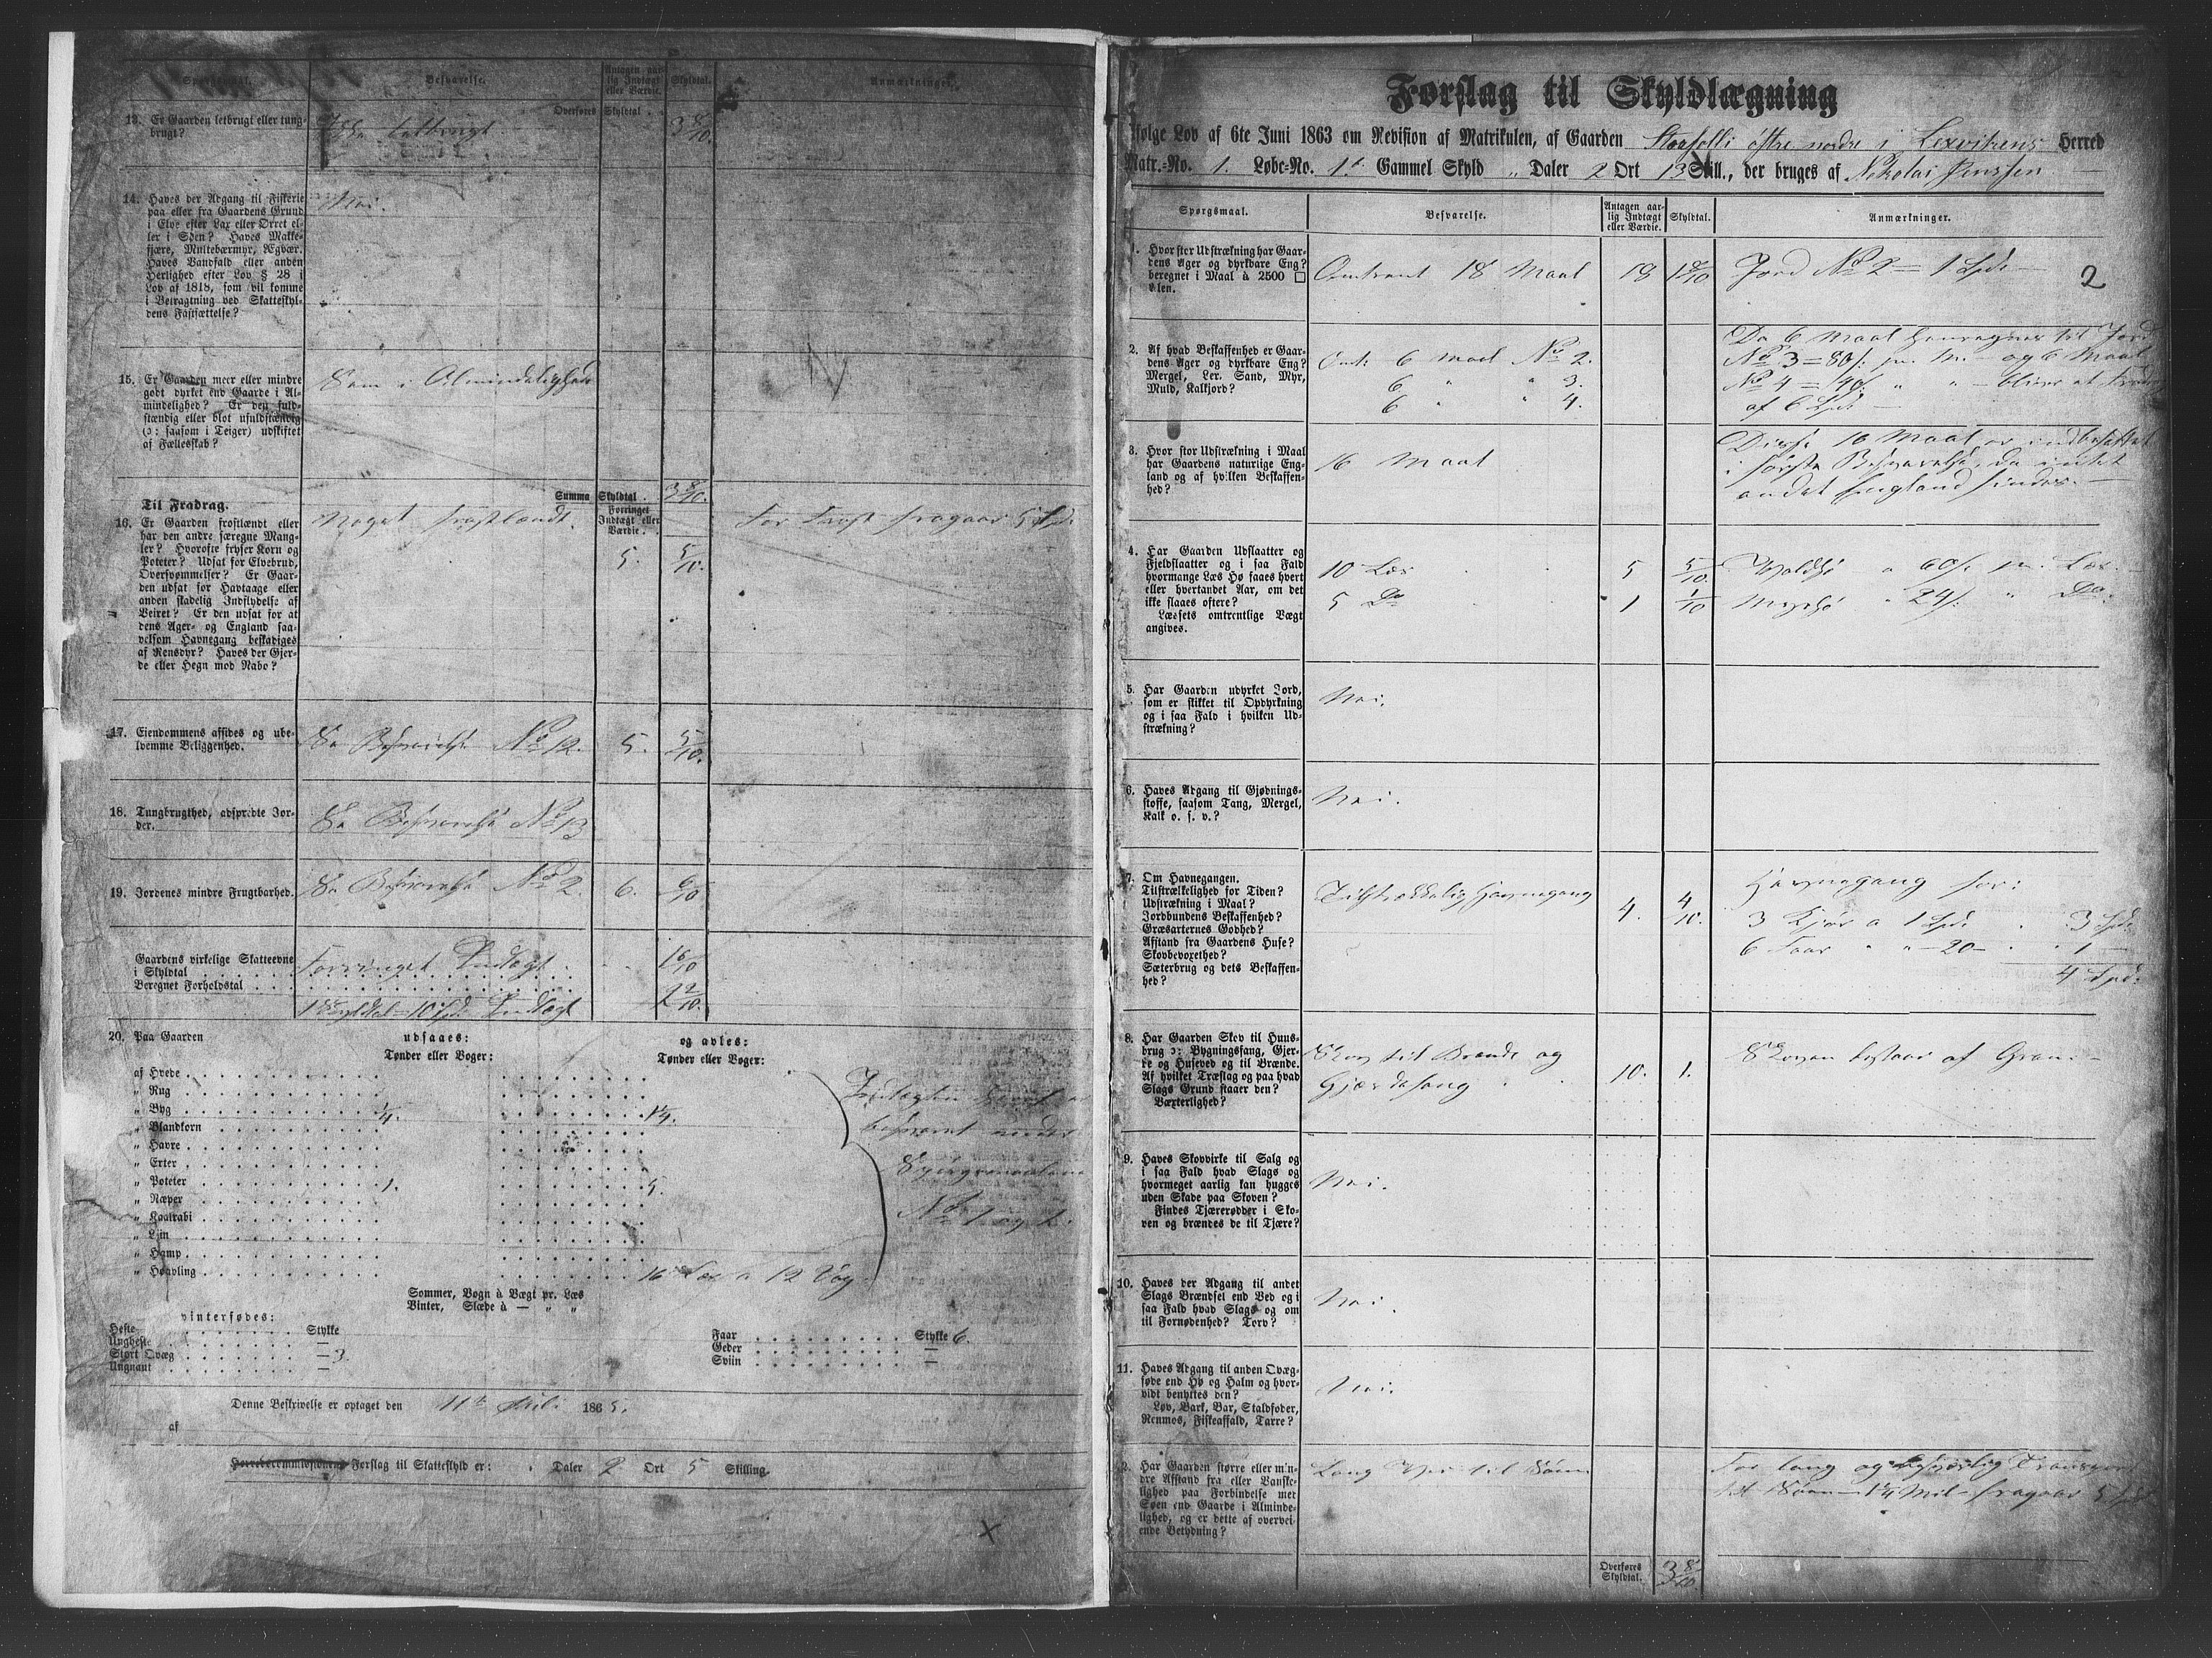 Spørgsmaal.
Besvarelse.
Antagen aar-
lig Indtægt
eller Værdie.
Skyldtal.
Anmærkninger.
Overføres Skyldtal . . 3 8/10.
13. Er Gaarden letbrugt eller tung-
brugt?
Ikke letbrugt.
14. Haves der Adgang til Fiskerie
paa eller fra Gaardens Grund
i Elve efter Lax eller Ørret el-
ler i Søen? Haves Makke-
fjære, Multebærmyr, Ægvær.
Haves Vandfald eller anden
Herlighed efter Lov § 28 i
Lov af 1818, som vil komme
i Betragtning ved Skatteskyl-
dens Fastsættelse?
Nei.
15. Er Gaarden meer eller mindre
godt dyrket end Gaarde i Al-
mindelighed? Er den fuld-
stændig eller blot ufuldstændig
(ɔ: saasom i Teiger) udskiftet
af Fællesskab?
Som i Almindelighed
Summa Skyldtal . 3 8/10.
Til Fradrag.
Forringet
Indtægt eller
Værdie.
16. Er Gaarden frostlændt eller
har den andre særegne Mang-
ler? Hvorofte fryser Korn og
Poteter? Udsat for Elvebrud,
Oversvømmelser? Er Gaar-
den udsat for Havtaage eller
anden skadelig Indflydelse af
Veiret? Er den udsat for at
dens Ager- og England saa-
velsom Havnegang beskadiges
af Rensdyr? Haves der Gjer-
de eller Hegn mod Nabo?
Noget frostlændt.
5. 5/10.
For Frost fragaar 5 Spd.
17. Eiendommens afsides og ube-
kvemme Beliggenhed.
Se Besvarelse No 12. 5. 5/10.
18. Tungbrugthed, adspredte Jor-
der.
Se Besvarelse No 13
19. Jordenes mindre Frugtbarhed.
Se Besvarelse No 2 6. 6/10
Gaardens virkelige Skatteevne
i Skyldtal . . . .
Forringet Indtægt . . . 16/10
Beregnet Forholdstal . . . 2 2/10.
1 Skyldtal = 10 Spd. Indtægt
20. Paa Gaarden
udsaaes:
Tønder eller Voger:
og avles:
Tønder eller Voger:
af Hvede
" Rug
" Byg 1/4. 1 1/4.
" Blandkorn
" Havre
" Erter
" Poteter 1. 5.
" Næper
" Kaalrabi
" Liin
" Hamp
" Høavling 16 Læs a 12 Vog
besvaret under
Spørgsmaalene
Sommer, Vogn à Vægt pr. Læs
Vinter, Slæde à — " "
vinterfødes:
Heste Stykke
Ungheste —
Stort Qvæg — 3.
Ungnaut —
Faar Stykke 6.
Geder —
Sviin —
Denne Beskrivelse er optaget den 11te Juli 1865.
af
Herredscommissionens Forslag til Skatteskyld er: . Daler 2 Ort 5 Skilling.
X
Forslag til Skyldlægning
ifølge Lov af 6te Juni 1863 om Revision af Matrikulen, af Gaarden Storfolli østre nordre i Lexvikens Herred
Matr.-No. 1. Løbe-No. 1c Gammel Skyld " Daler 2 Ort 13 Skill., der bruges af Nikolai Jenssen
Spørgsmaal.
Besvarelse.
Antagen aar-
lig Indtægt
eller Værdie.
Skyldtal.
Anmærkninger.
1. Hvor stor Udstrækning har Gaar-
dens Ager og dyrkbare Eng?
beregnet i Maal à 2500 □
Alen.
Omtrent 18 Maal 18 1 8/10 Jord No 2 = 1 Spd. 2
2. Af hvad Beskaffenhed er Gaar-
dens Ager og dyrkbare Eng?
Mergel, Ler, Sand, Myr,
Muld, Kalkjord?
Omt. 6 Maal No 2.
6 " " 3.
6 " " 4.
Da 6 Maal henregnes til Jord
No 3 = 80 s. pr. M. og 6 Maal
No 4 = 40 s. " " — bliver at fradr.
af 6 Spd. —
3. Hvor stor Udstrækning i Maal
har Gaardens naturlige Eng-
land og af hvilken Beskaffen-
hed?
16 Maal
Disse 16 Maal er indbefattet
i første Besvarelse, da intet
andet England findes. —
4. Har Gaarden Udslaatter og
Fjeldslaatter og i saa Fald
hvormange Læs Hø faaes hvert
eller hvertandet Aar, om det
ikke slaaes oftere?
Læssets omtrentlige Vægt
angives.
10 Læs 5 5/10. Voldhø a 60 s. pr. Læs.
5 Do 1 1/10 Myrhø " 24 s. " Do.
5. Har Gaarden udyrket Jord,
som er skikket til Opdyrkning
og i saa Fald i hvilken Ud-
strækning?
Nei.
6. Haves Adgang til Gjødnings-
stoffe, saasom Tang, Mergel,
Kalk o. s. v.?
Nei.
7. Om Havnegangen.
Tilstrækkelighed for Tiden?
Udstrækning i Maal?
Jordbundens Beskaffenhed?
Græsarternes Godhed?
Afstand fra Gaardens Huse?
Skovbevoxethed?
Sæterbrug og dets Beskaffen-
hed?
Tilstrækkelig Havnegang 4. 4/10.
Havnegang for:
3 Kjør a 1 Spd. . 3 Spd.
6 Faar " " — 20 — " 1 —
4 Spd.
8. Har Gaarden Skov til Huus-
brug ɔ: Bygningsfang, Gjer-
de og Huseved og til Brænde.
Af hvilket Træslag og paa hvad
Slags Grund staaer den?
Væxterlighed?
Skov til Brænde og
Gjærdefang . . 10. 1.
Skoven bestaar af Gran —
9. Haves Skovvirke til Salg og
i saa Fald hvad Slags og
hvormeget aarlig kan hugges
uden Skade paa Skoven?
Findes Tjærerødder i Sko-
ven og brændes de til Tjære?
Nei.
10. Haves der Adgang til andet
Slags Brændsel end Ved og i
saa Fald hvad Slags og om
til Fornødenhed? Torv?
Nei.
11. Haves Adgang til anden Qvæg-
føde end Hø og Halm og hvor-
vidt benyttes den?
Løv, Bark, Bar, Staldfoder,
Renmos, Fiskeaffald, Tarre?
Nei.
2. Har Gaarden større eller min-
dre Afstand fra eller Vanske-
lighed paa Forbindelse med
Søen end Gaarde i Alminde-
lighed, og er dette af overvei-
ende Betydning?
Lang Vei til Søen
For lang og besværlig Transport
til Søen — 1 1/4 Mil — fragaar 5 Spd
Overføres
Skyldtal. 3 8/10.